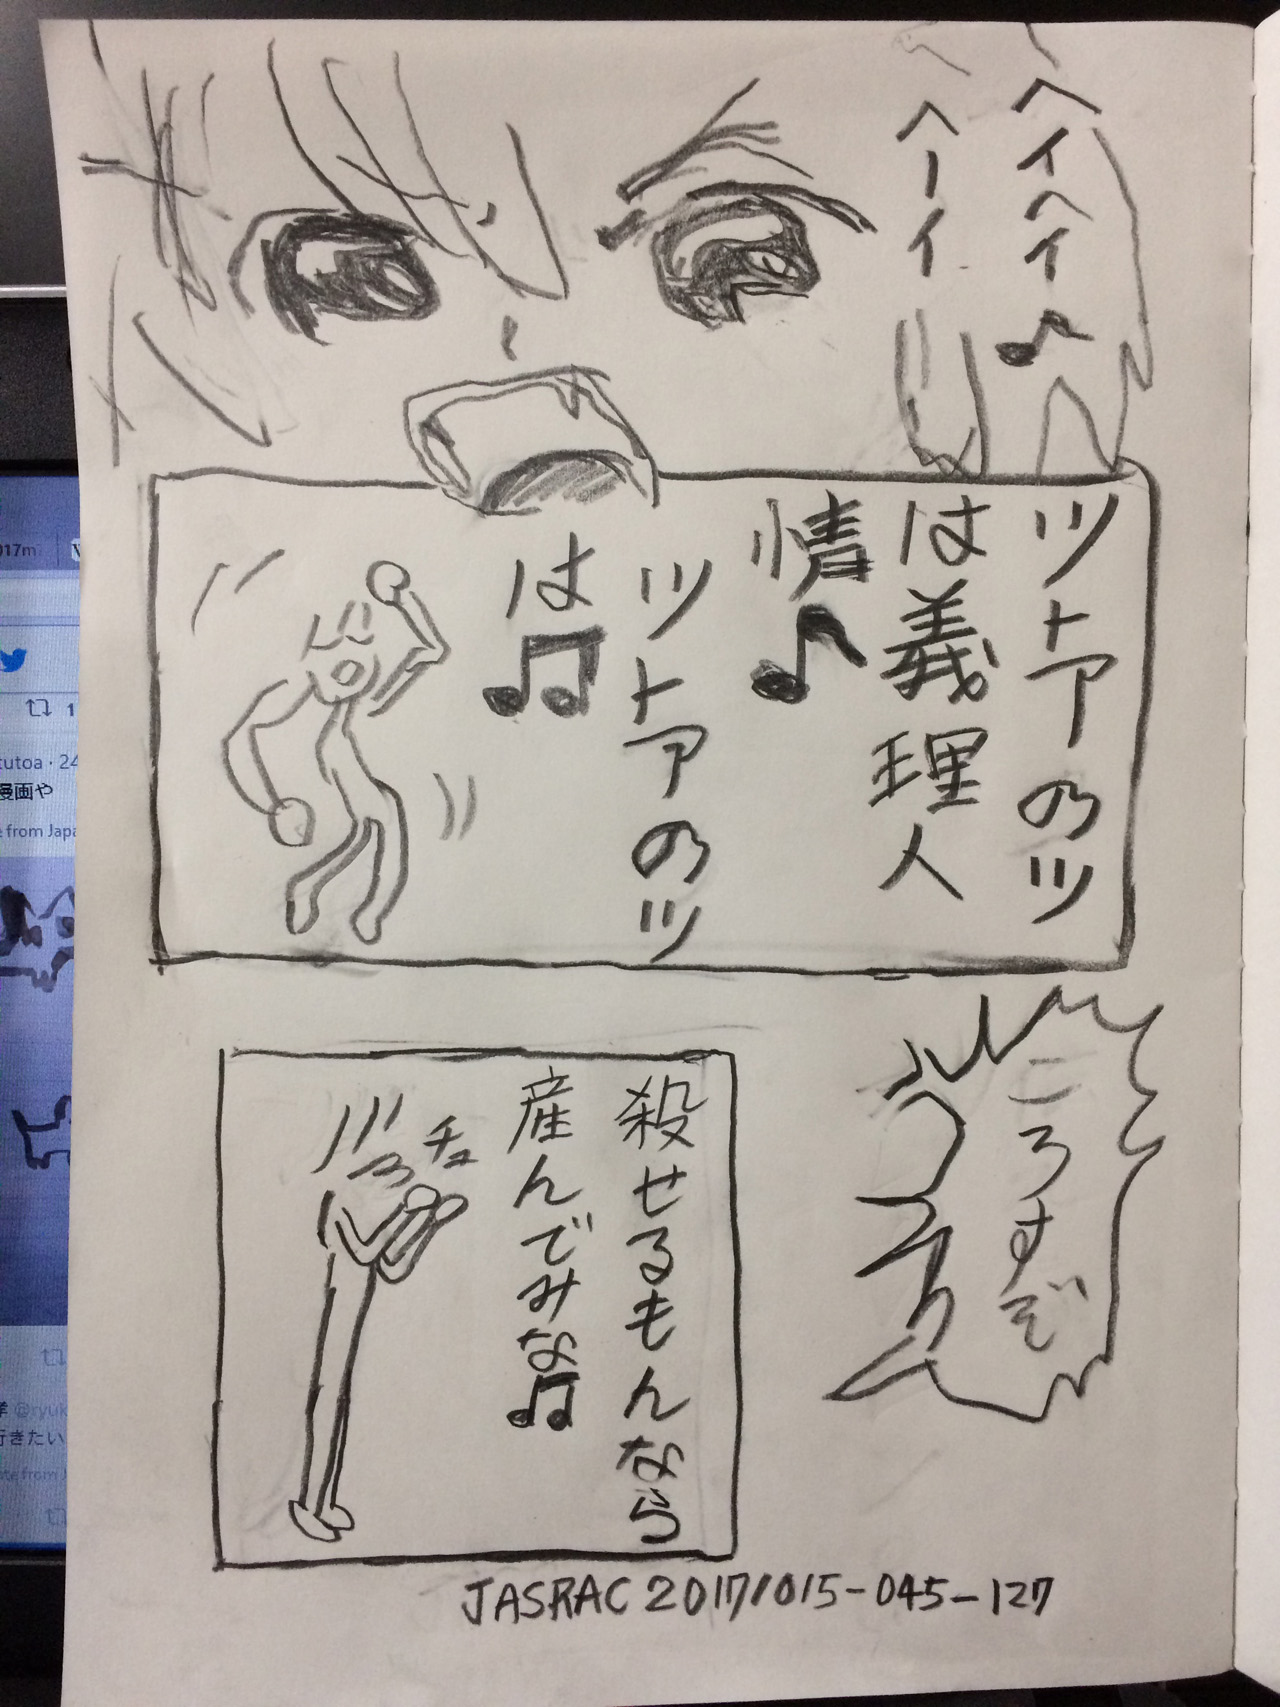 ヘイヘイ♪
ヘーイ
ツトアのツ
は義理人
情♪
ツトアのツ
は♫
ころすぞ
殺せるもんなら
産んでみな♫
チュ
っ
JASRAC 2017/015-045-127
017m
1
tutoa · 24
漫画や
e from Japa
@ryuk
行きたい